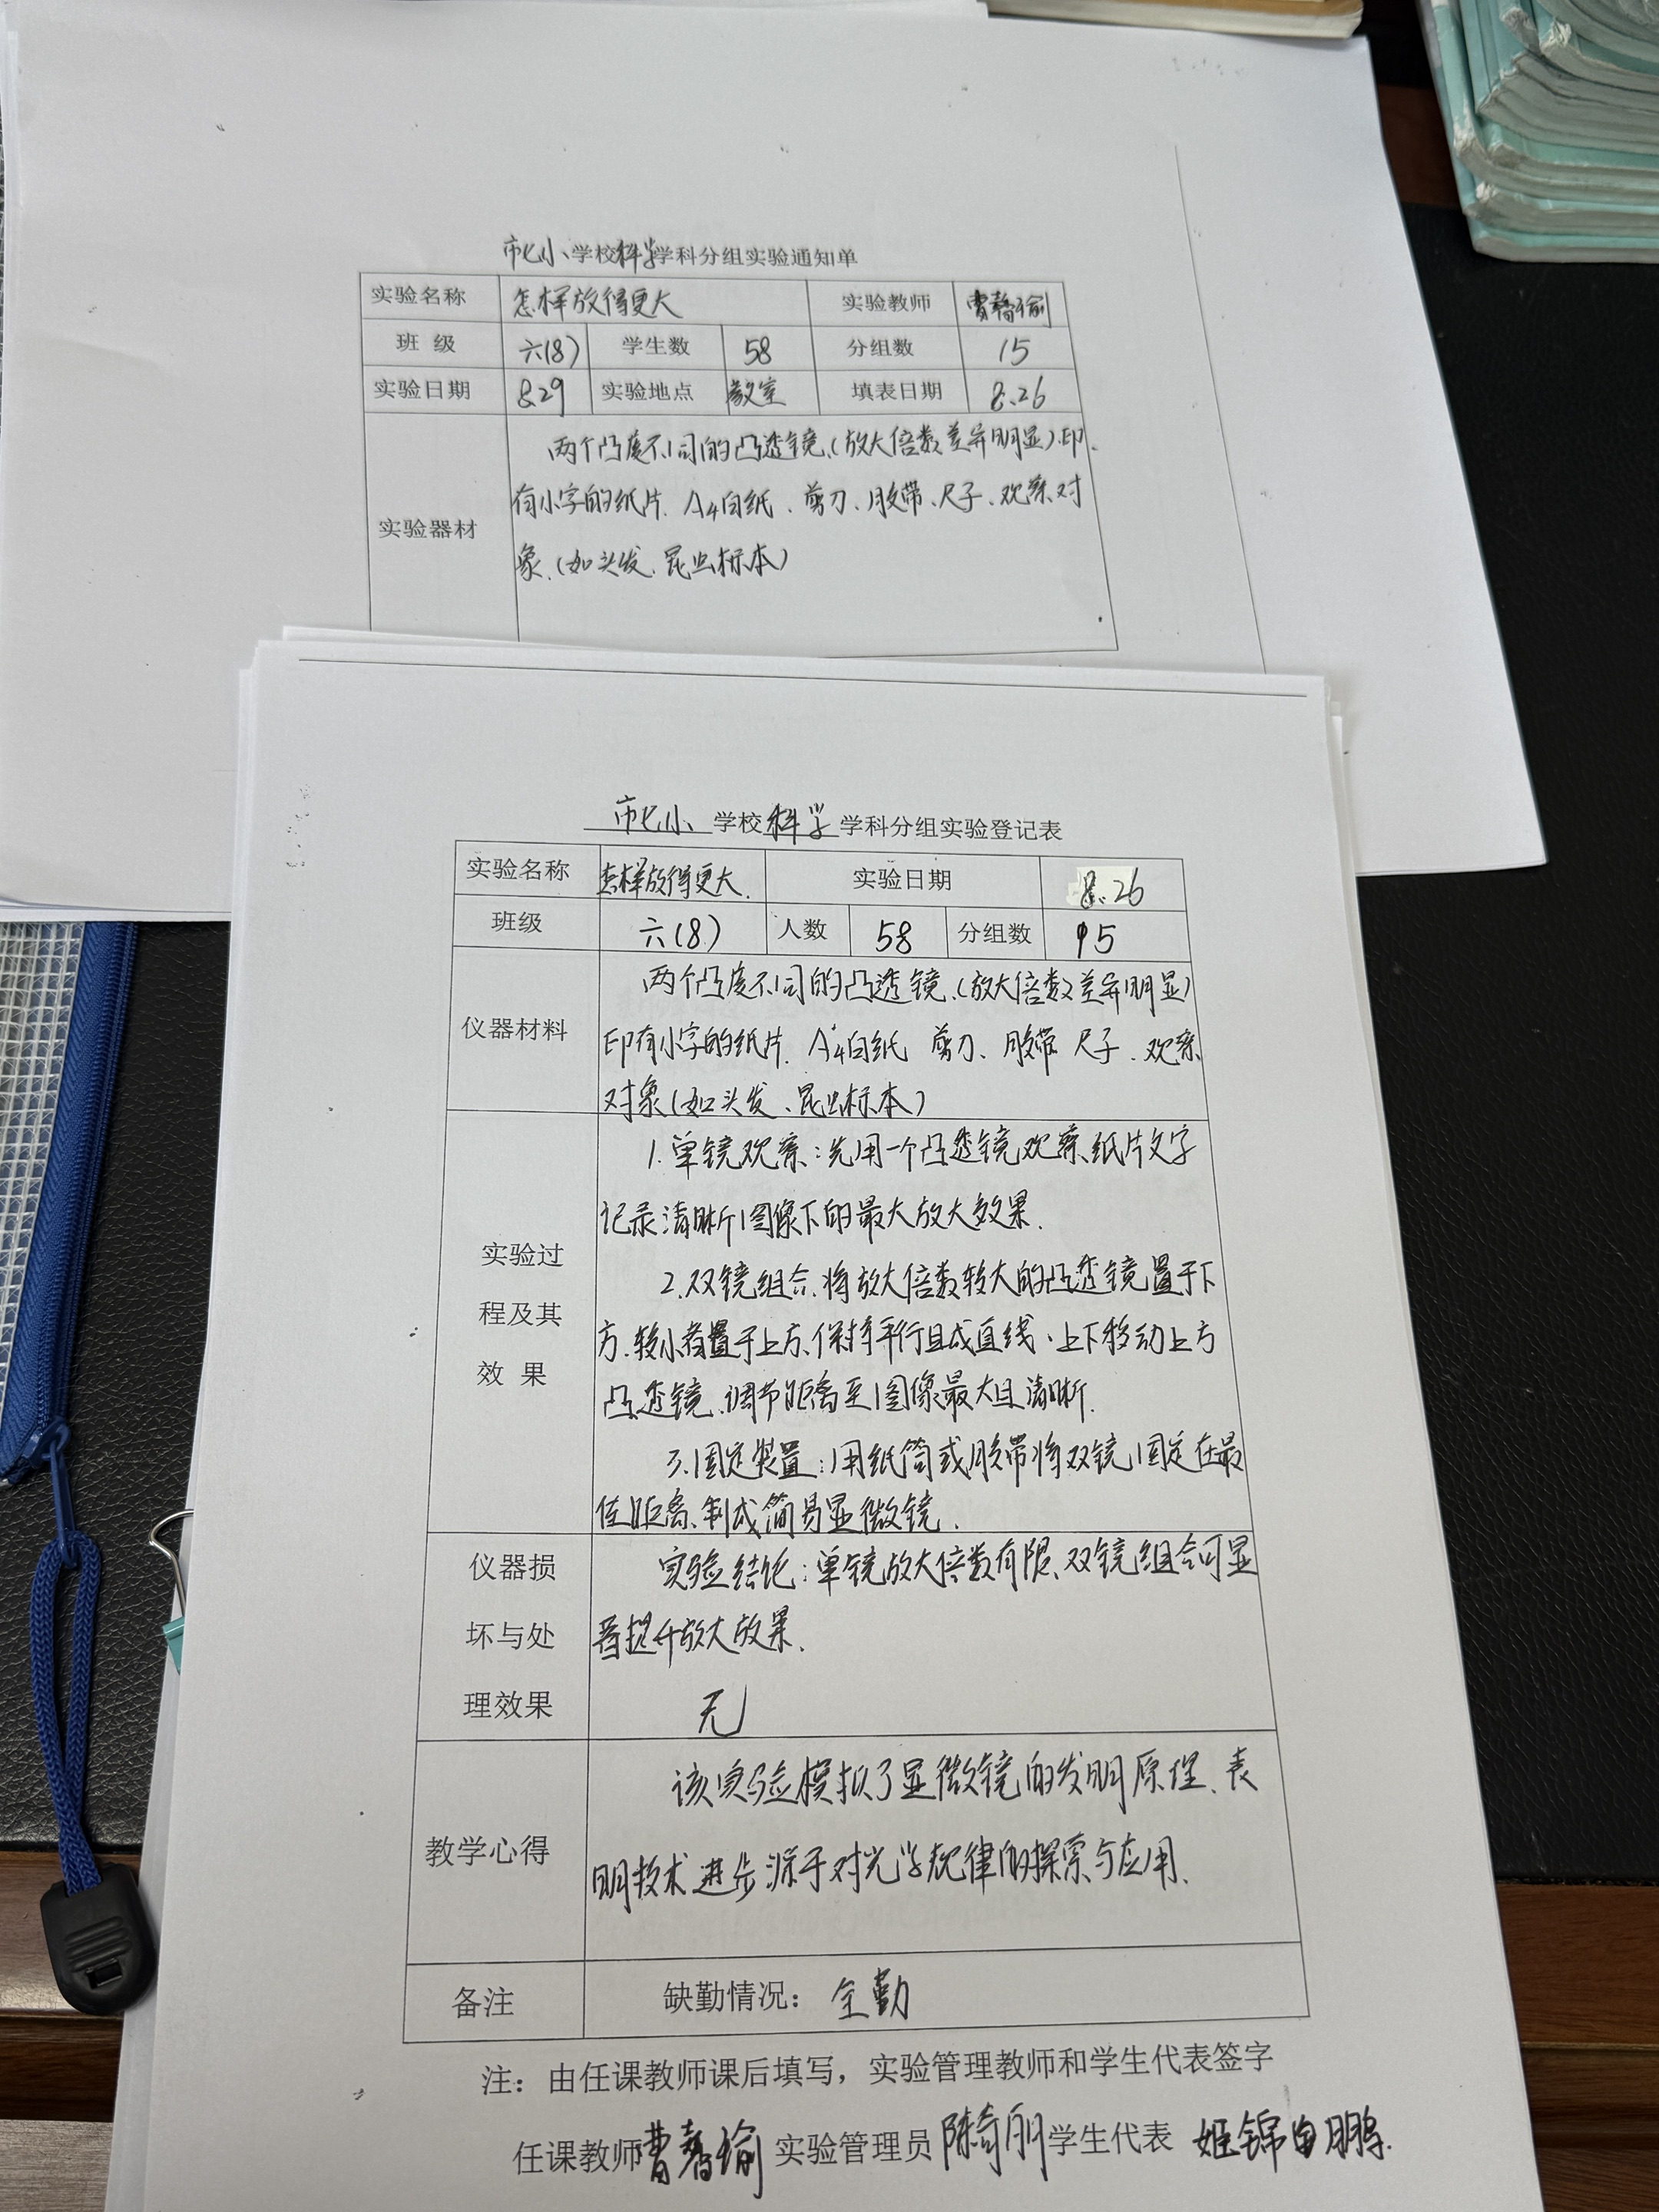 市七小 学校 科学 学科分组实验通知单
实验名称 怎样放得更大 实验教师 曹馨瑜
班 级 六(8) 学生数 58 分组数 15
实验日期 8.29 实验地点 教室 填表日期 8.26
实验器材
两个凸度不同的凸透镜、(放大倍数差异明显)、印
有小字的纸片、A4白纸、剪刀、胶带、尺子、观察对
象、(如头发、昆虫标本)
市七小 学校 科学 学科分组实验登记表
实验名称 怎样放得更大. 实验日期 8.26
班级 六(8) 人数 58 分组数 15
仪器材料
两个凸度不同的凸透镜、(放大倍数差异明显)
印有小字的纸片、A4白纸 剪刀、胶带 尺子、观察
对象(如头发、昆虫标本)
实验过
程及其
效 果
1.单镜观察:先用一个凸透镜观察纸片文字
记录清晰图像下的最大放大效果.
2.双镜组合.将放大倍数较大的凸透镜置于下
方.较小者置于上方、保持平行且成直线、上下移动上方
凸透镜、调节距离至图像最大且清晰.
3.固定装置:用纸筒或胶带将双镜固定在最
佳距离、制成简易显微镜.
仪器损
坏与处
理效果
实验结论:单镜放大倍数有限、双镜组合可显
著提升放大效果.
无
教学心得
该实验模拟了显微镜的发明原理、表
明技术进步源于对光学规律的探索与应用、
备注 缺勤情况: 全勤
注:由任课教师课后填写,实验管理教师和学生代表签字
任课教师 曹馨瑜 实验管理员 陈奇朋 学生代表